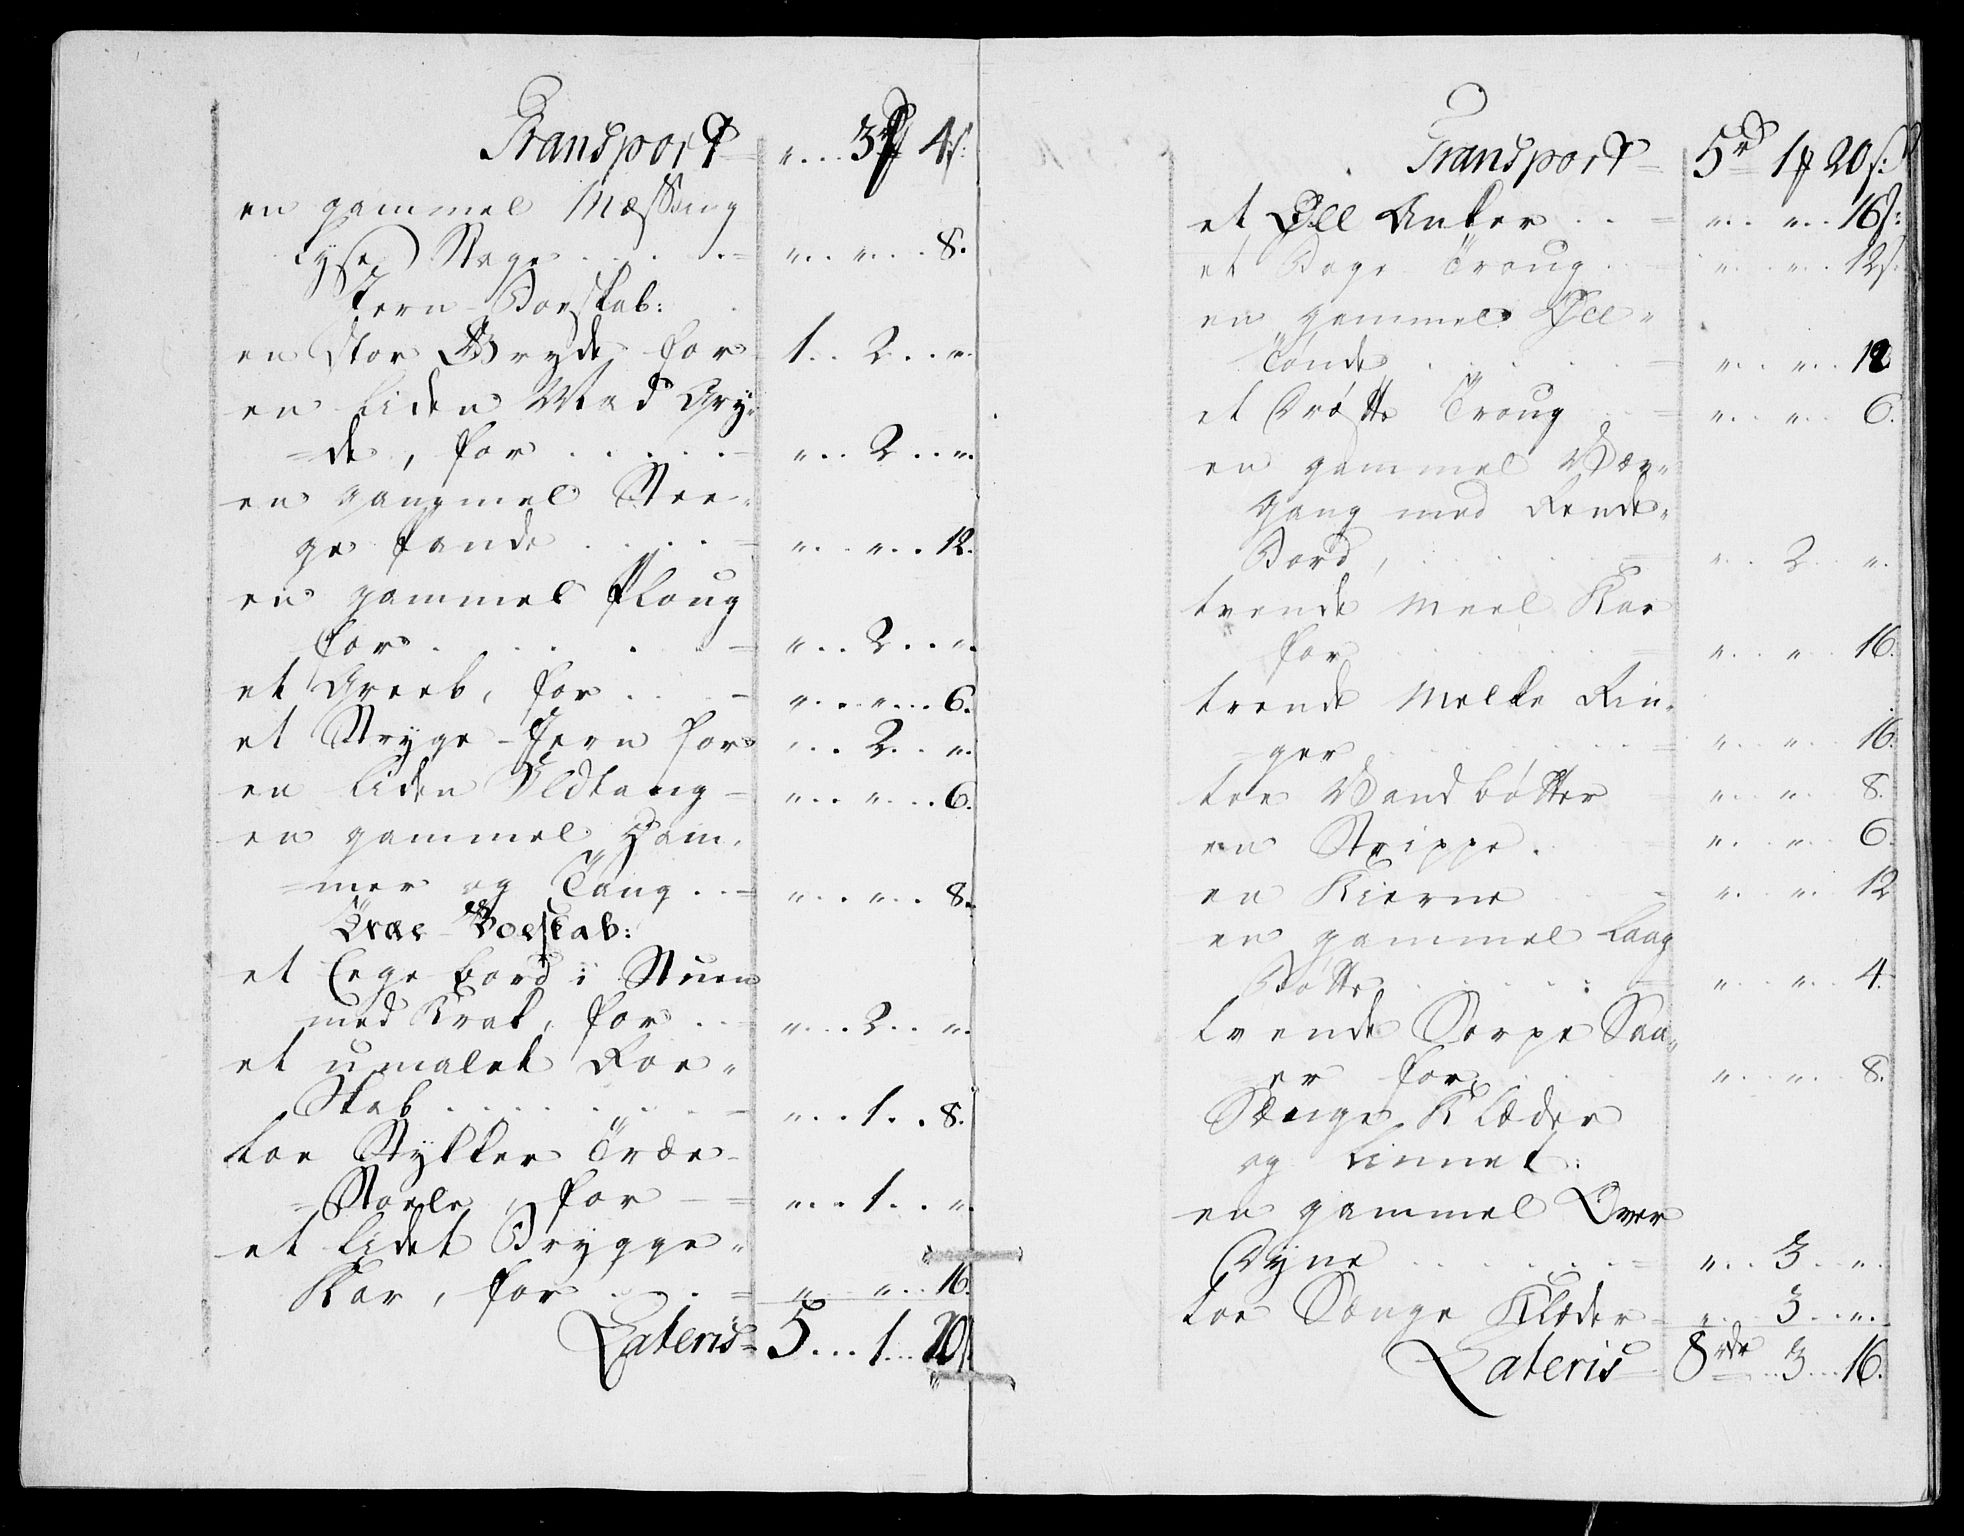 Transport = „ . . . 3 # 4 s:
en gammel Mæssing
Lyse Stage . . . . . = „ . . „ . . . 8.
Jern-Boeskab:
en Stor Gryde for 1 . . 2 . . „
en liden Mad Gry-
=de, for . . . . . - „ . . 2 . . „
en gammel Stee-
ge Pande . . . . = „ . . „ . . 12.
en gammel Ploug
for . . . . . - „ . . 2 . . „
et Greeb, for . . . - „ . . . „ . . . 6.
et Stryge-Jern for „ . . 2 . . „
en liden Ildtang - „ . . . „ . . . 6.
en gammel Ham-
=mer og Tang . . = „ . . . „ . . 8.
Træe-Boeskab:
et Eege bord i Stuen
med Krak, for . . - „ . . . 2 . . „
et umalet Roe-
Skab . . . . . . . . - „ . . . 1 . . 8.
toe Stykker Træe-
=Stoele, for - = „ . . . 1 . . „
et lidet Brygge-
Kar, for . . . . = „ „ . . 16.
Lateris = 5 . . . 1 . . 20 s
Transport = 5 rd 1 # 20 s:
et Øll Anker . . = „ . . „ . . 16 s:
et Bage Troug . . „ . . „ . . 12 s:
en gammel Øll-
Tønde . . . . . - „ . . „ . . 12
et Brøste Troug . . = „ . . „ . . 6.
en gammel Væv-
gang med Rende-
Bord, . . . . . . = „ . . 2 . . „
tvende Meel Kar
for . . . . . . . = „ . . „ . . 16.
tvende Melke Rin-
=ger . . . . . . . = „ . . „ . . 16.
toe Vand bøtter „ . . „ . . 8.
en Strippe. . . - „ . . „ . . 6.
en Kierne . . = „ . . „ . . 12
en gammel Laag
Bøtte . . . . . : = „ . . „ . . 4.
tvende Sorpe Saa-
er for . . . . „ . . „ . . 8.
Sænge Klæder
og Linnet:
en gammel Over
Dyne . . . . . . = „ . . 3 . . „
toe Sænge Klæder - „ . . 3 . . „
Lateris = 8 rdr . . 3 . . 16.